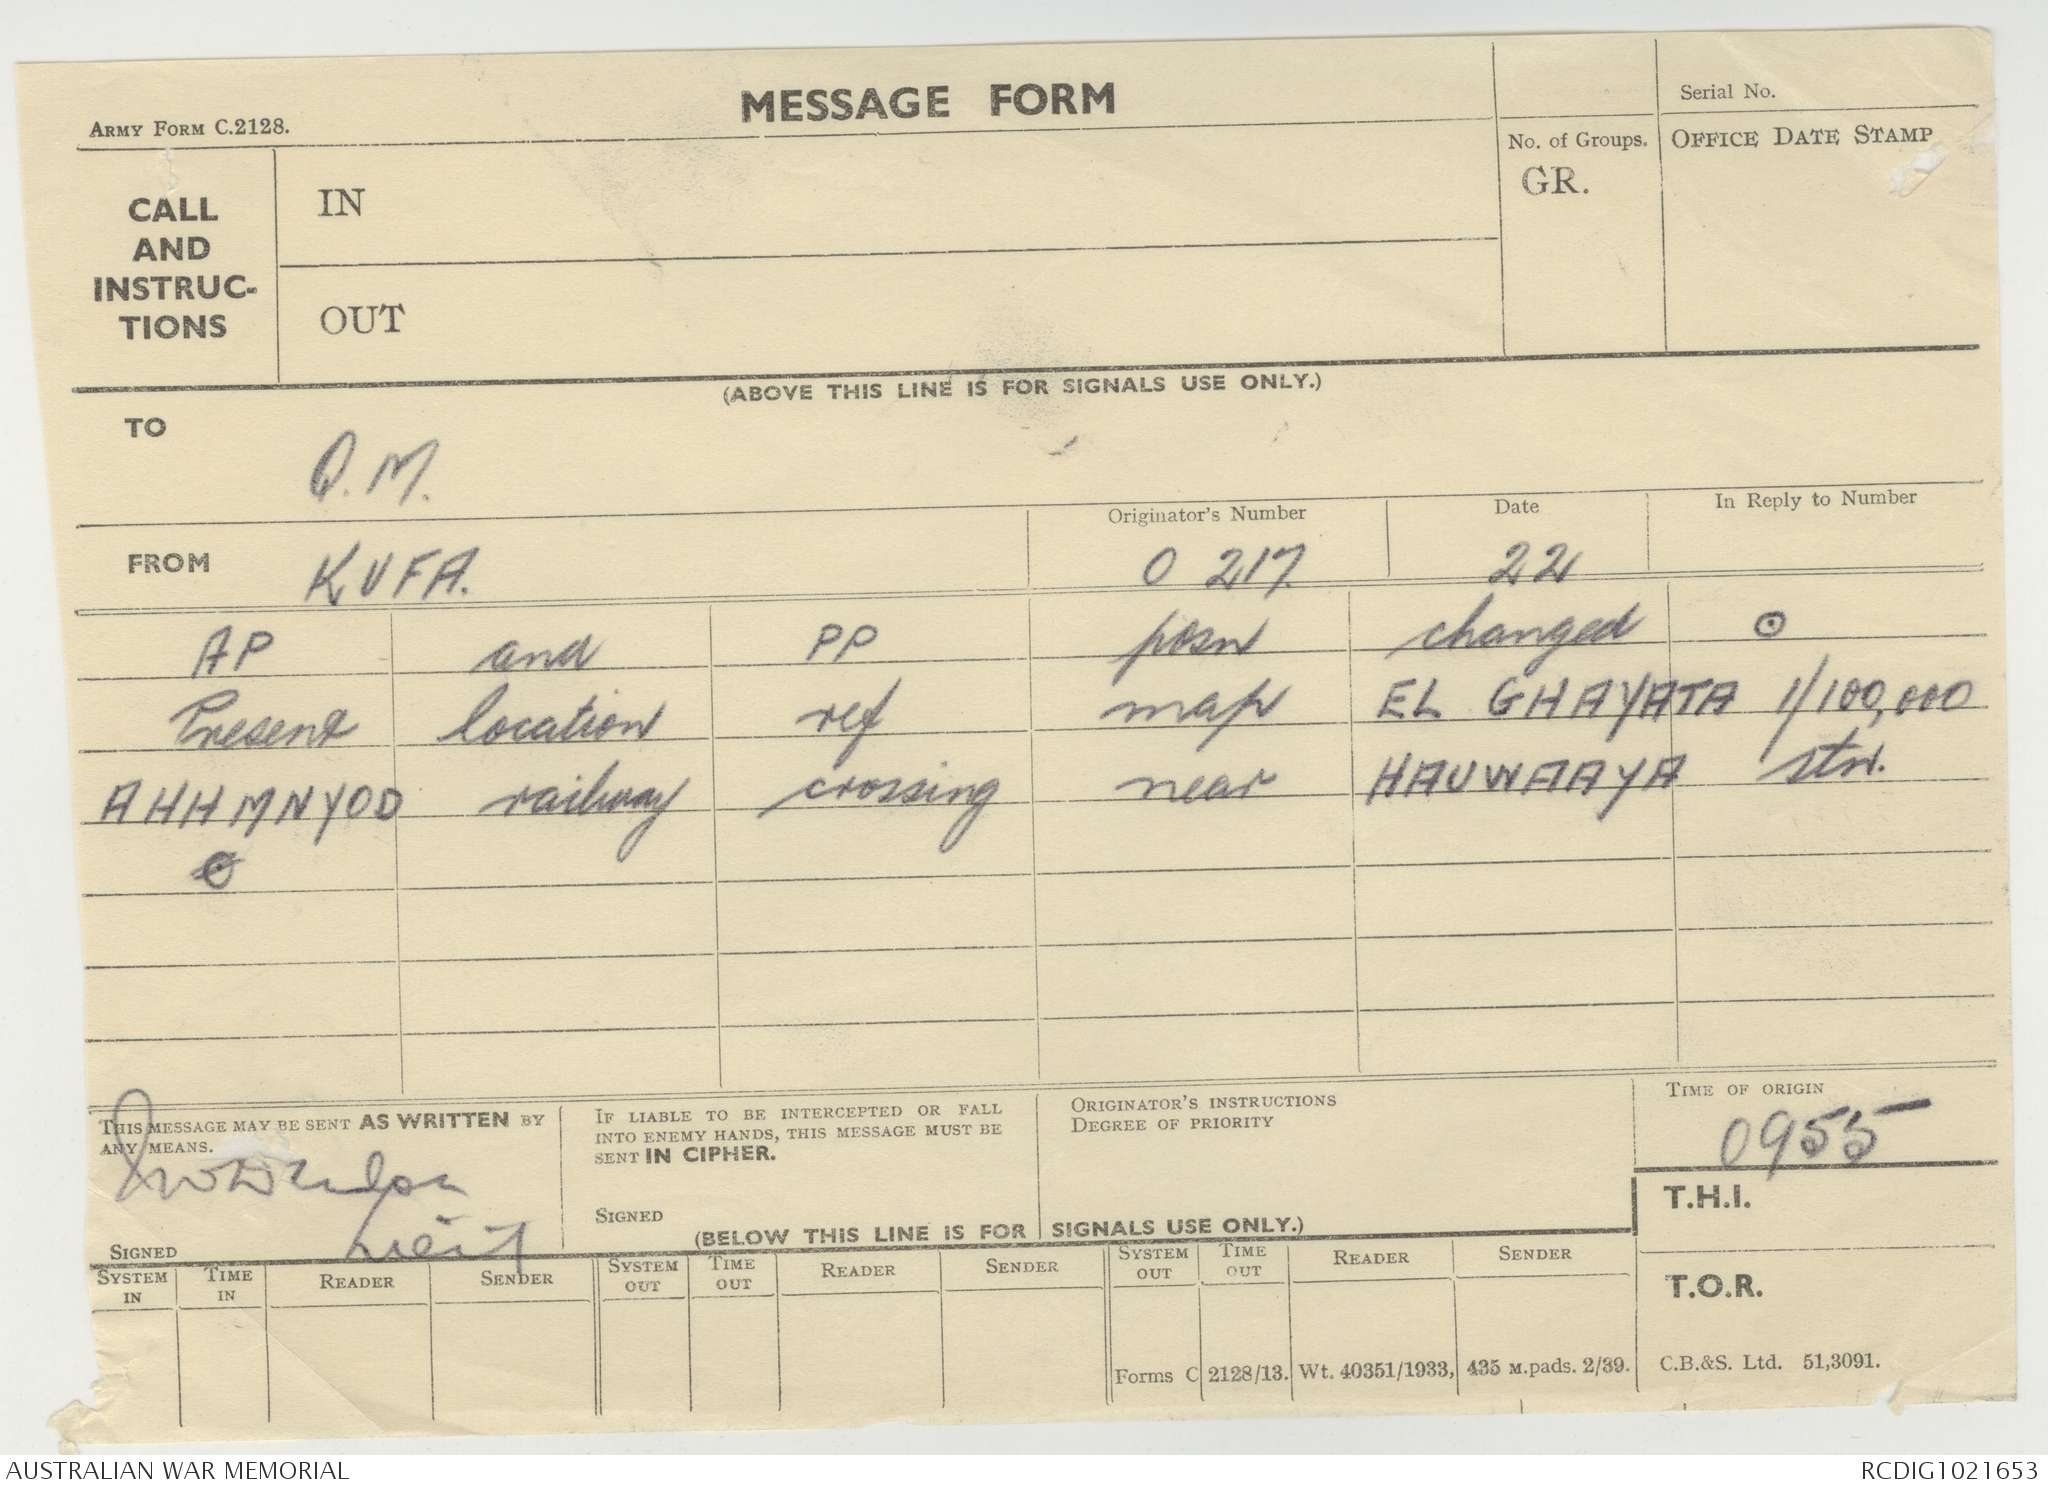 MESSAGE FORM
Army Form C.2128.
Serial No.
No. of Groups.
GR.
OFFICE DATE STAMP
CALL
AND
INSTRUC-
TIONS
IN
OUT
(ABOVE THIS LINE IS FOR SIGNALS USE ONLY.)
TO
Q.M.
FROM
KUFA.
Originator's Number
O 217.
Date
22
In Reply to Number
AP and PP posn changed ⊙
Present location ref map EL GHAYATA 1/100,000
AHHMNYOD railway crossing near HAUWAAYA stn.
⊙
This message may be sent AS WRITTEN by
any means.
Lieut
Signed
If liable to be intercepted or fall
into enemy hands, this message must be
sent IN CIPHER.
Signed
Originator's instructions
Degree of priority
Time of origin
0955
T.H.I.
T.O.R.
(BELOW THIS LINE IS FOR SIGNALS USE ONLY.)
System in
Time in
Reader
Sender
System out
Time out
Reader
Sender
System out
Time out
Reader
Sender
Forms C 2128/13. Wt. 40351/1933, 435 M.pads. 2/39. C.B.&S. Ltd. 51,3091.
AUSTRALIAN WAR MEMORIAL
RCDIG1021653